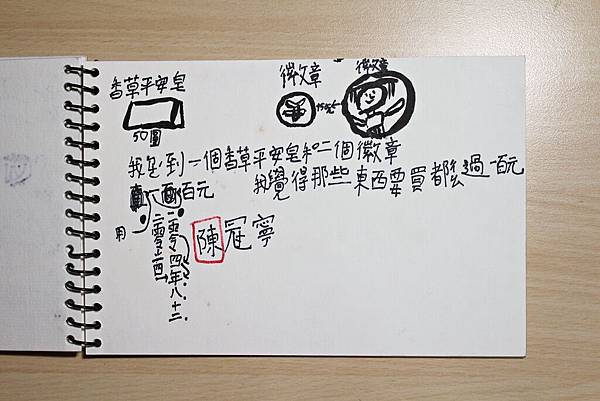 徽章 徽章
香草平安皂
50圓
我心到一個香草平安皂和二個徽章
百元 我覺得那些東西要買都么過一百元
用
二零一四
二零令四年八.十二.
陳冠寧